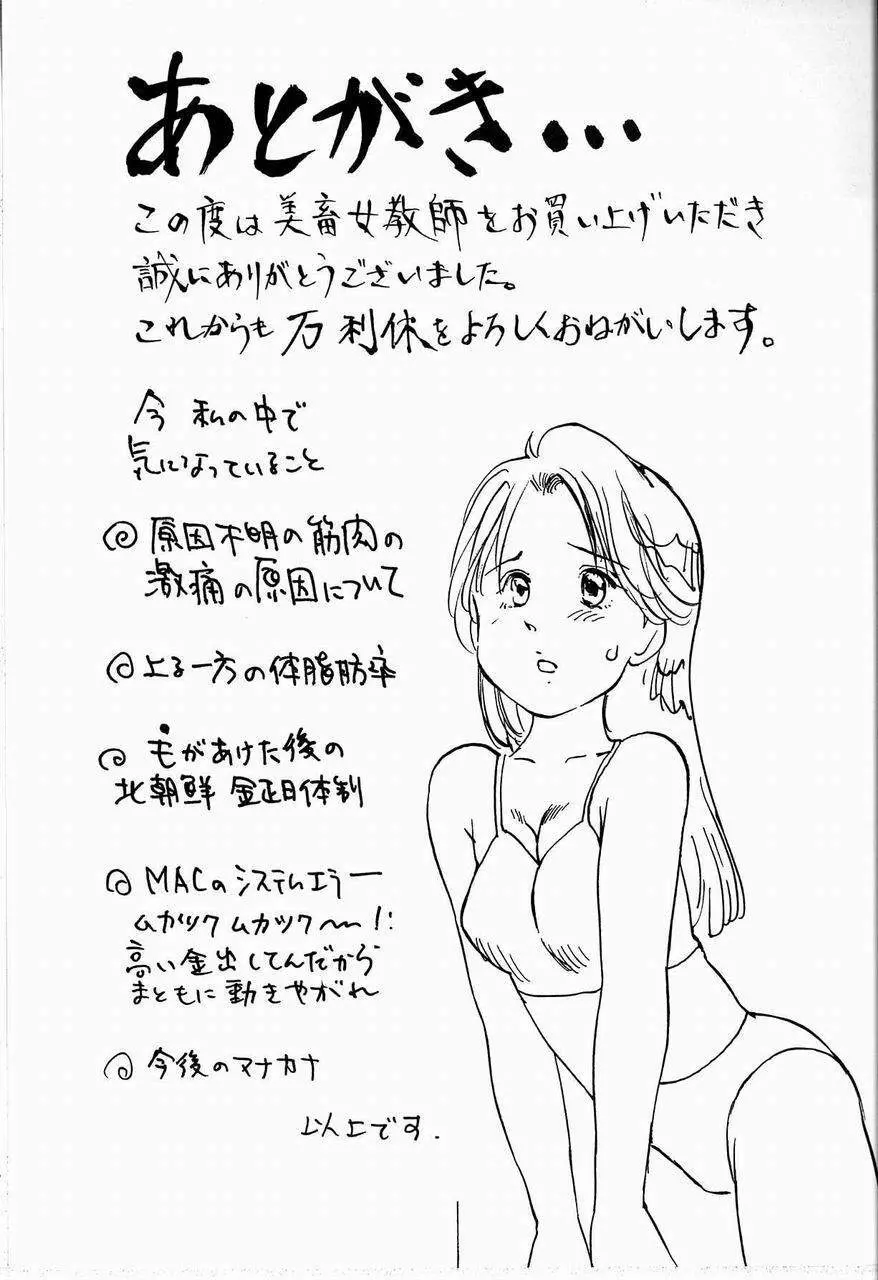 あとがき...
この度は美畜女教師をお買い上げいただき
誠にありがとうございました。
これからも万利休をよろしくおねがいします。
今 私の中で
気になっていること
原因不明の筋肉の
激痛の原因について
上る一方の体脂肪率
もがあけた後の
北朝鮮 金正日体制
MACのシステムエラー
ムカツク ムカツク〜〜!!
高い金出してんだから
まともに動きやがれ
今後のマナカナ
以上です.